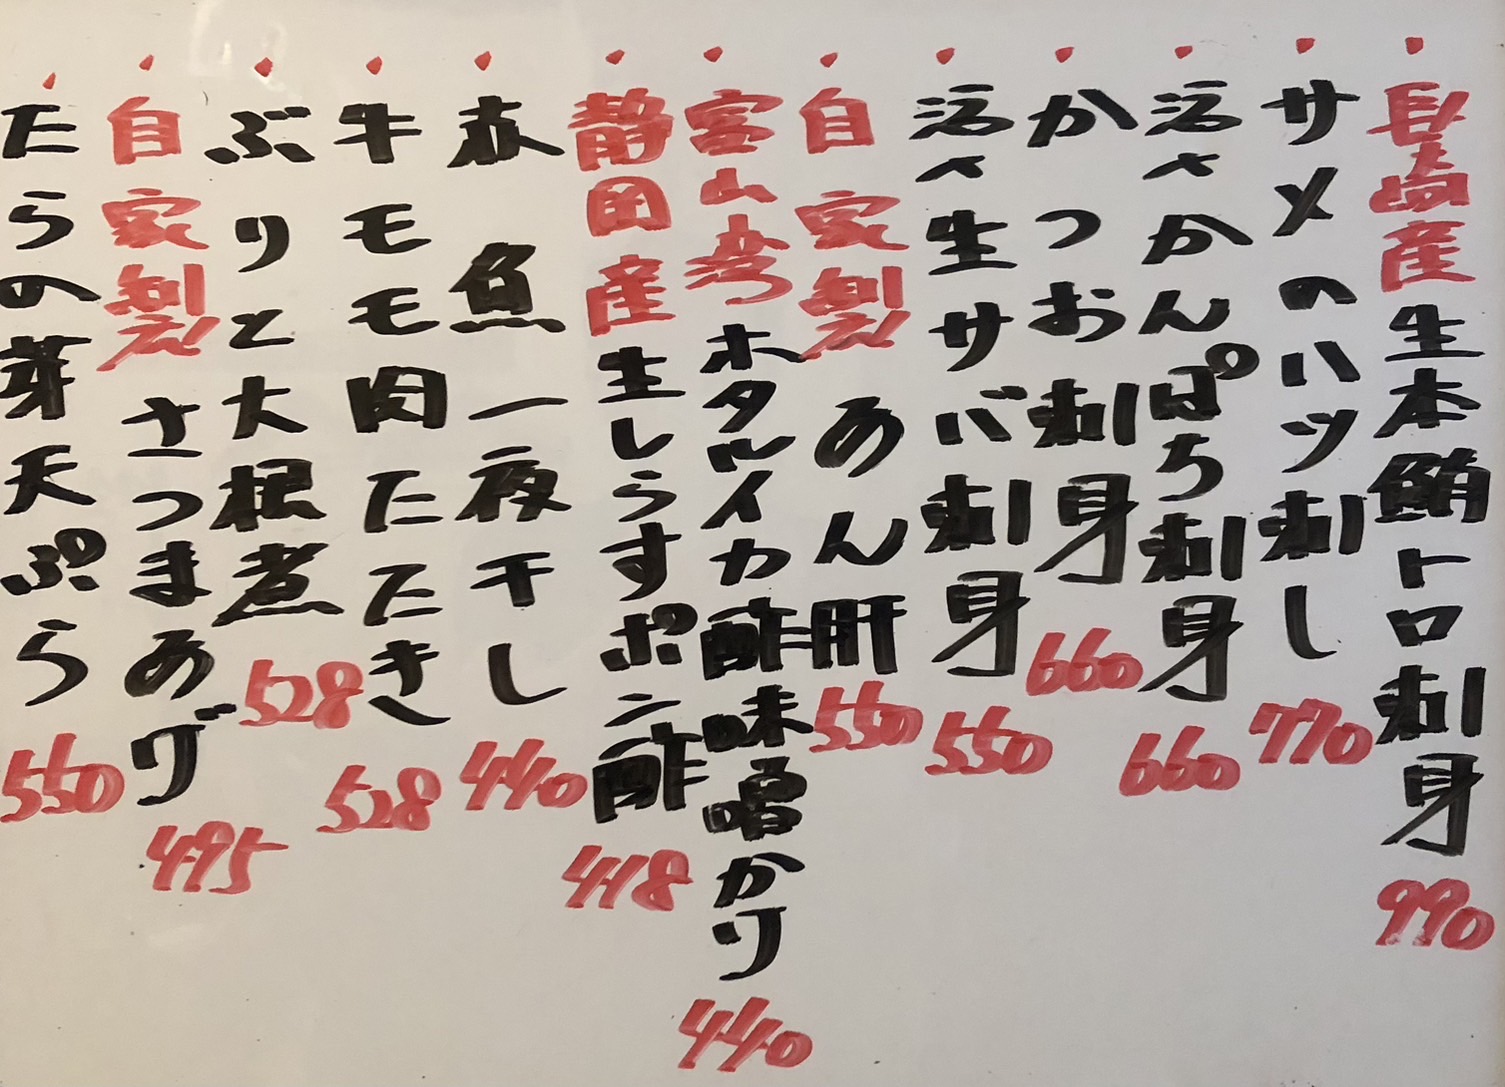 ・長崎産生本鮪トロ刺身 990
・サメのハツ刺し 770
・活〆かんぱち刺身 660
・かつお刺身 660
・活〆生サバ刺身 550
・自家製 あん肝 550
・富山産ホタルイカ酢味噌かけ 440
・静岡産生しらすポン酢 418
・赤魚一夜干し 440
・牛モモ肉たたき 528
・ぶりと大根煮 528
・自家製さつまあげ 495
・たらの芽天ぷら 550